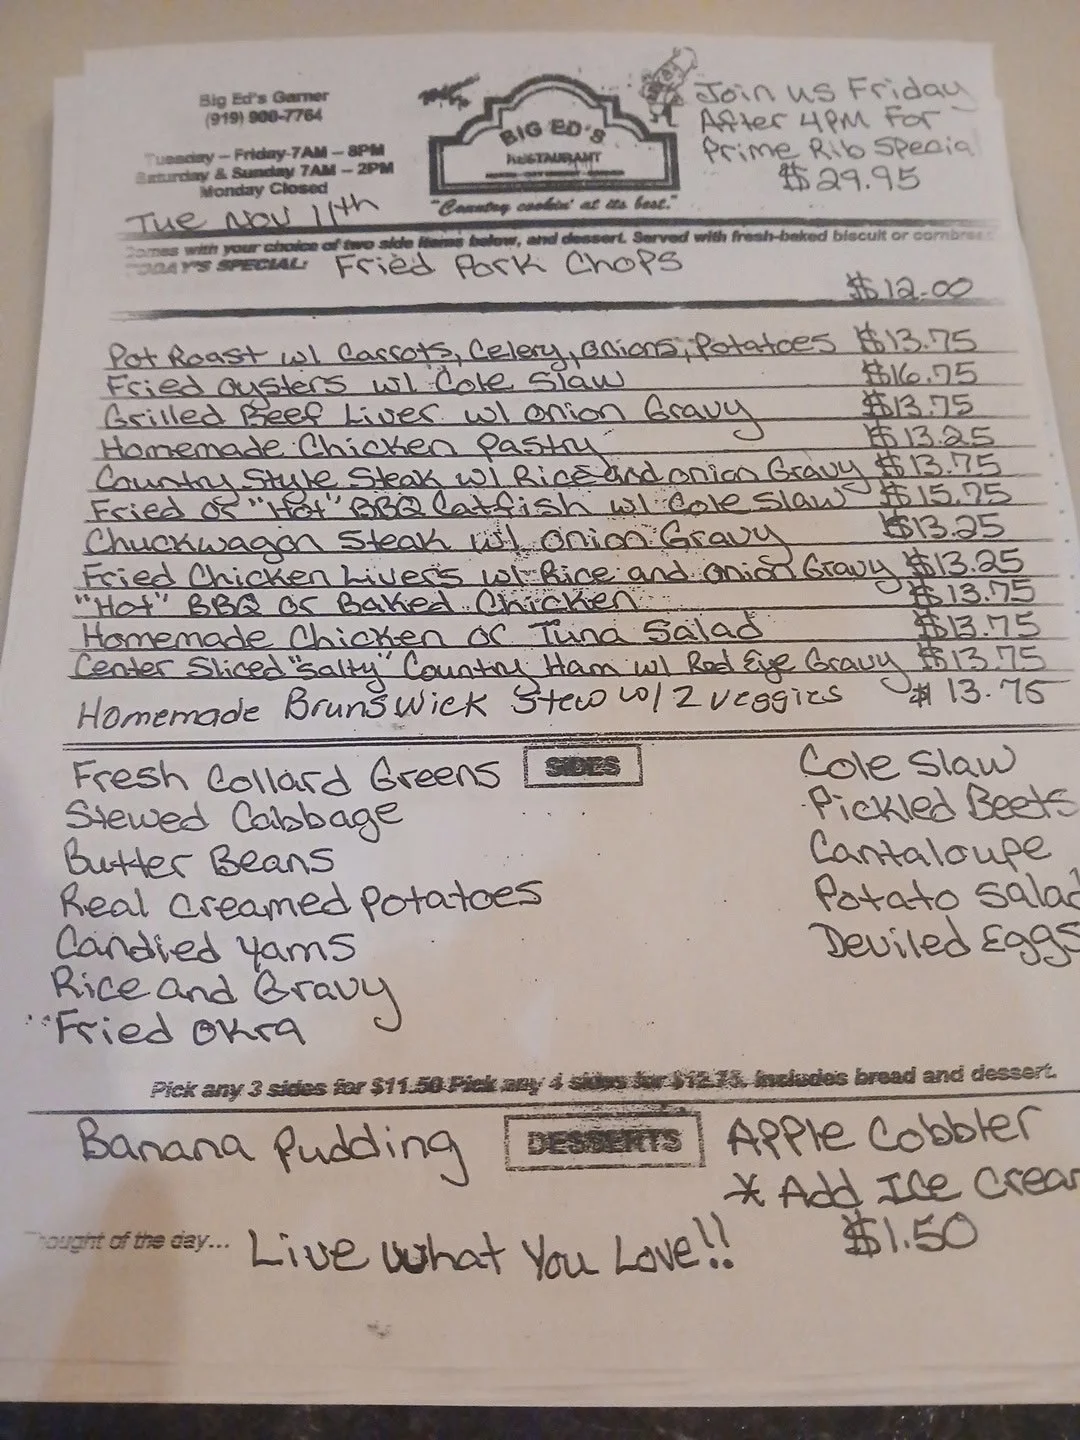 Big Ed's Garner
(919) 900-7764
Tuesday – Friday-7AM – 8PM
Saturday & Sunday 7AM – 2PM
Monday Closed
Tue Nov 11th
BIG ED'S
RESTAURANT
"Country cookin' at its best."
Join us Friday
After 4PM For
Prime Rib Special
$29.95
Comes with your choice of two side items below, and dessert. Served with fresh-baked biscuit or cornbread
TODAY'S SPECIAL: Fried Pork Chops
$12.00
Pot Roast w/ Carrots, Celery, Onions, Potatoes $13.75
Fried Oysters w/ Cole Slaw $16.75
Grilled Beef Liver w/ Onion Gravy $13.75
Homemade Chicken Pastry $13.25
Country Style Steak w/ Rice and Onion Gravy $13.75
Fried or "Hot" BBQ Catfish w/ Cole Slaw $15.75
Chuckwagon Steak w/ Onion Gravy $13.25
Fried Chicken Livers w/ Rice and Onion Gravy $13.25
"Hot" BBQ or Baked Chicken $13.75
Homemade Chicken or Tuna Salad $13.75
Center Sliced "Salty" Country Ham w/ Red Eye Gravy $13.75
Homemade Brunswick Stew w/ 2 veggies $13.75
SIDES
Fresh Collard Greens
Stewed Cabbage
Butter Beans
Real Creamed Potatoes
Candied Yams
Rice and Gravy
Fried Okra
Cole Slaw
Pickled Beets
Cantaloupe
Potato Salad
Deviled Eggs
Pick any 3 sides for $11.50 Pick any 4 sides for $12.75. Includes bread and dessert.
DESSERTS
Banana Pudding
Apple Cobbler
* Add Ice Cream
$1.50
Thought of the day... Live What You Love!!